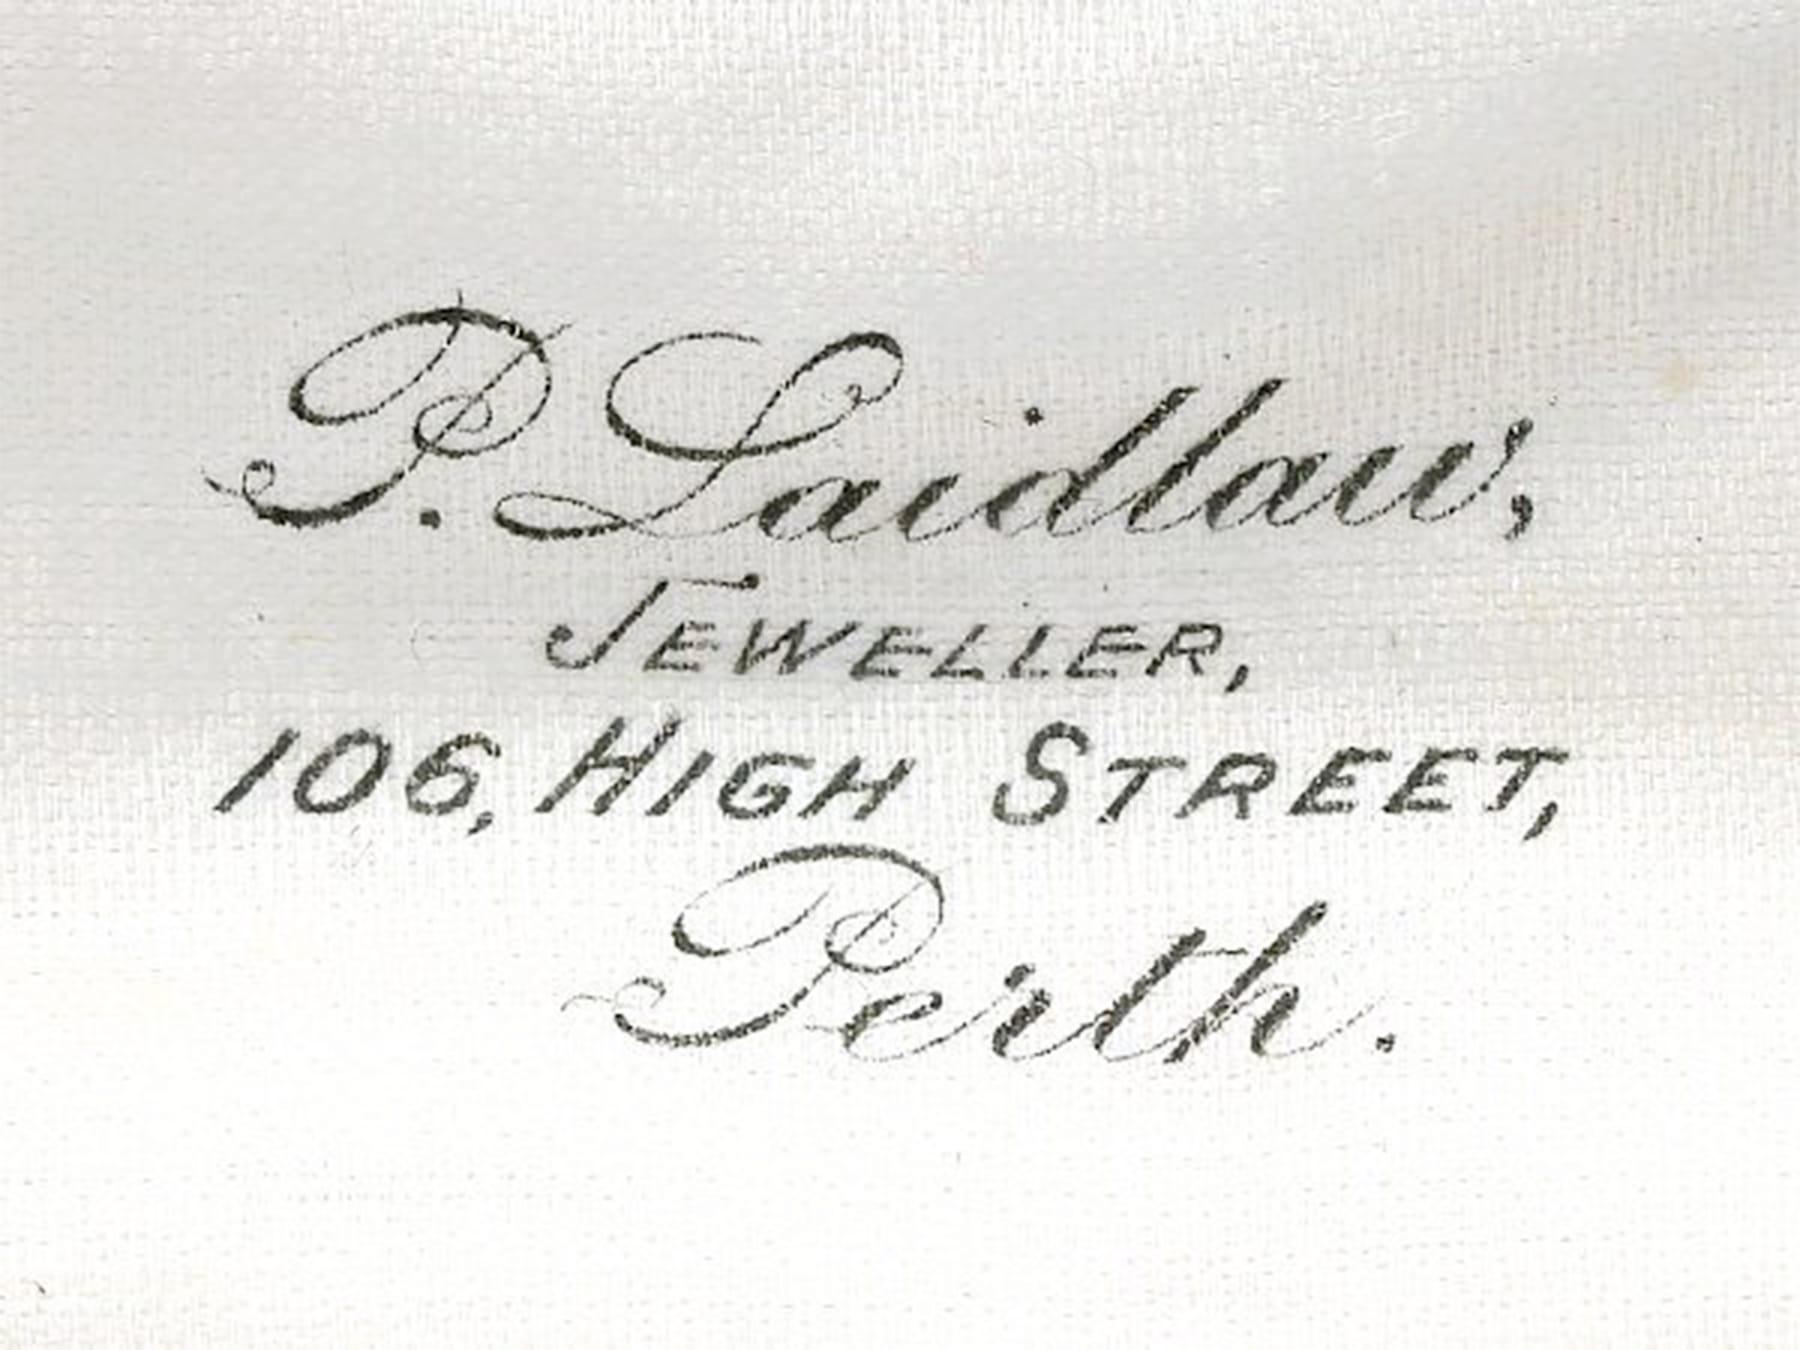 P. Laidlaw,
JEWELLER,
106, HIGH STREET,
Perth.